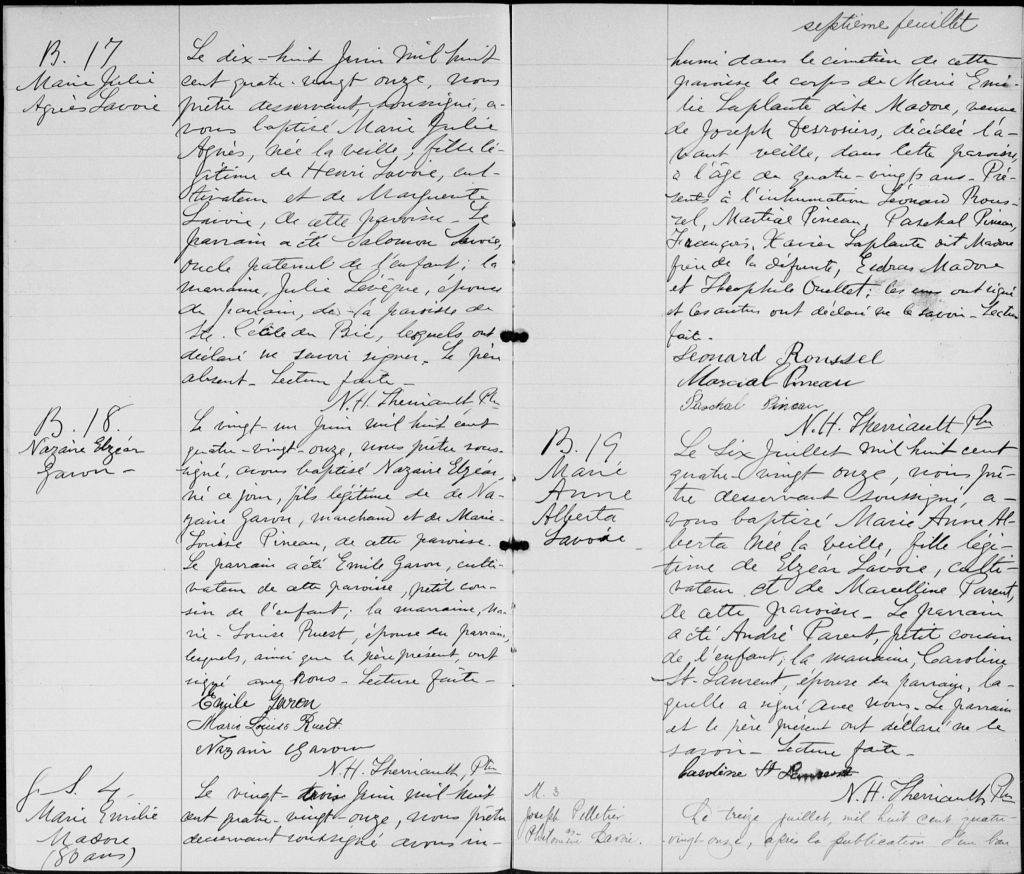 B. 17
Marie Julie
Agnès Lavoie
Le dix-huit Juin mil huit
cent quatre-vingt onze, nous
prêtre desservant soussigné, a-
vons baptisé Marie Julie
Agnès, née la veille, fille lé-
gitime de Henri Lavoie, cul-
tivateur et de Marguerite
Lavoie, de cette paroisse - Le
parrain a été Salomon Lavoie,
oncle paternel de l'enfant; la
marraine, Julie Lévêque, épouse
du parrain, de la paroisse de
Ste. Cécile du Bic, lesquels ont
déclaré ne savoir signer. Le père
absent - Lecture faite -
N.H. Therriault, Ptre
B. 18.
Nazaire Elzéar
Garon -
Le vingt un Juin mil huit cent
quatre-vingt-onze, nous prêtre sous-
signé, avons baptisé Nazaire Elzéar,
né ce jour, fils légitime de de Na-
zaire Garon, marchand et de Marie-
Louise Pineau, de cette paroisse.
Le parrain a été Emile Garon, culti-
vateur de cette paroisse, petit cou-
sin de l'enfant; la marraine, Ma-
rie-Louise Ruest, épouse du parrain,
lesquels, ainsi que le père présent, ont
signé avec nous - Lecture faite -
Emile Garon
Marie Louise Ruest
Nazaire Garon
N.H. Therriault, Ptre
S. 4
Marie Emilie
Madore
(80 ans)
Le vingt-trois Juin mil huit
cent quatre-vingt-onze, nous prêtre
desservant soussigné avons in-
septième feuillet
humé dans le cimetière de cette
paroisse le corps de Marie Emi-
lie Laplante dite Madore, veuve
de Joseph Desrosiers, décédée l'a-
vant veille, dans cette paroisse,
à l'âge de quatre-vingts ans - Pré-
sents à l'inhumation Léonard Rous-
sel, Martial Pineau, Paschal Pineau,
François-Xavier Laplante dit Madore
frère de la défunte, Esdras Madore
et Théophile Ouellet; les uns ont signé
et les autres ont déclaré ne le savoir - Lecture
faite -
Leonard Roussel
Marcial Pineau
Paschal Pineau
N.H. Therriault Ptre
B. 19
Marie
Anne
Alberta
Lavoie -
Le Six Juillet mil huit cent
quatre-vingt onze, nous prê-
tre desservant soussigné, a-
vons baptisé Marie Anne Al-
berta née la veille, fille légi-
time de Elzéar Lavoie, culti-
vateur et de Marcelline Parent,
de cette paroisse - Le parrain
a été André Parent, petit cousin
de l'enfant; la marraine, Caroline
St-Laurent, épouse du parrain, la-
quelle a signé avec nous - Le parrain
et le père présent ont déclaré ne le
savoir - Lecture faite -
Caroline St Laurent
N.H. Therriault, Ptre
M. 3
Joseph Pelletier
Philomène Lavoie.
Le treize juillet, mil huit cent quatre-
vingt-onze, après la publication d'un ban